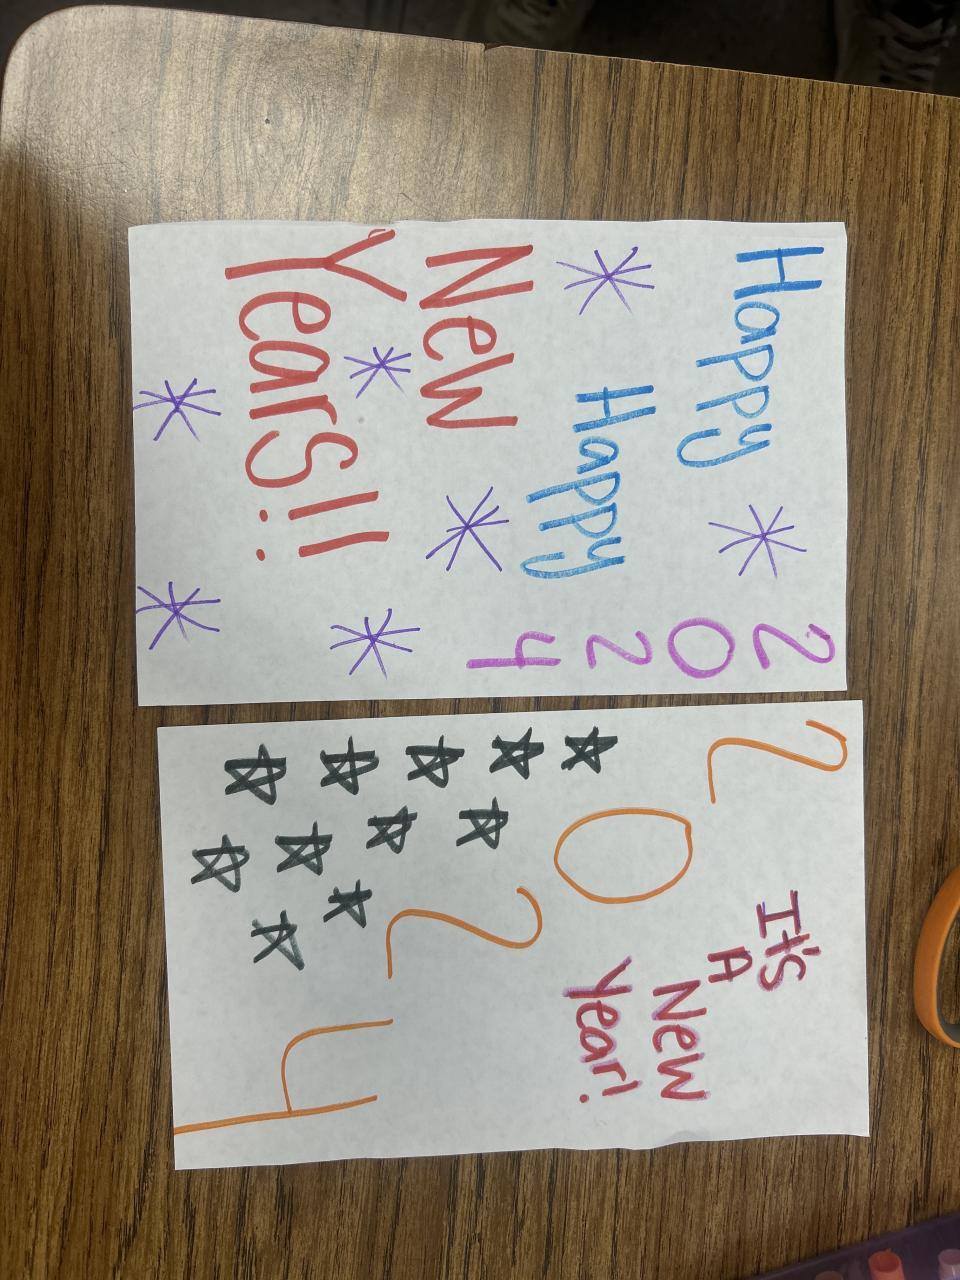 Happy
Happy
New
Years!!
2024
It's
A
New
Year!
2024